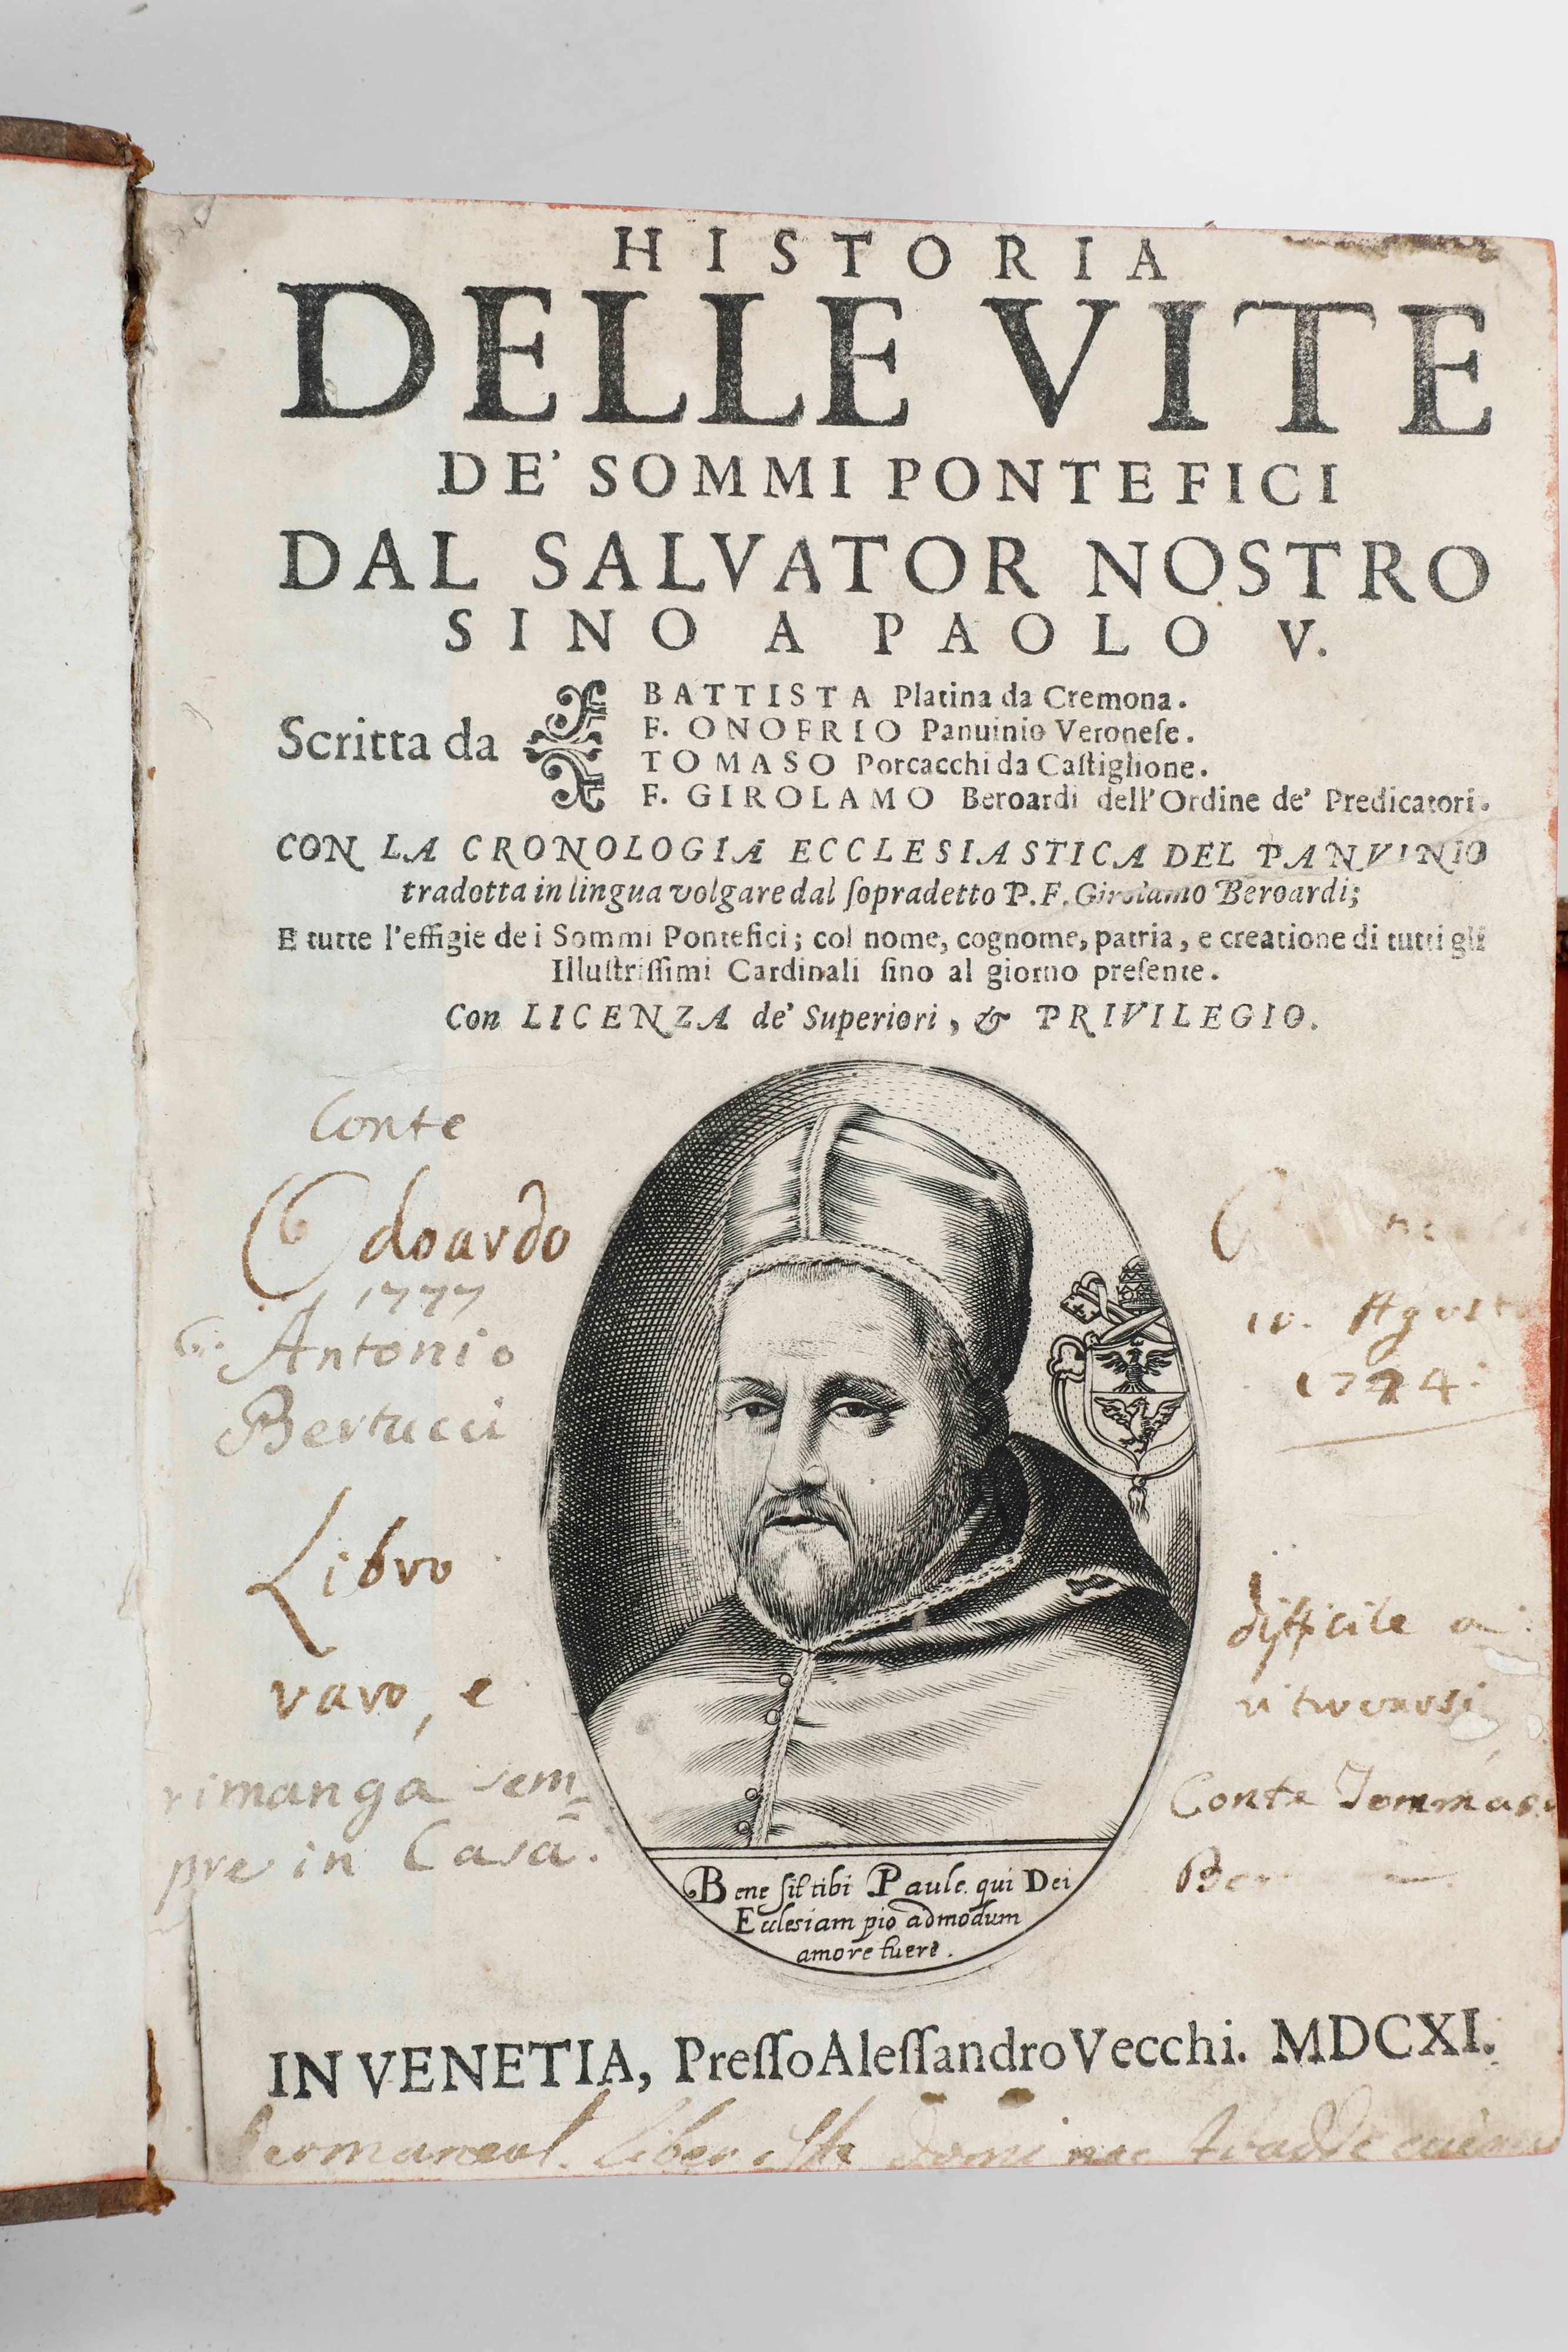 HISTORIA
DELLE VITE
DE' SOMMI PONTEFICI
DAL SALVATOR NOSTRO
SINO A PAOLO V.
Scritta da
BATTISTA Platina da Cremona.
F. ONOFRIO Panuinio Veroneſe.
TOMASO Porcacchi da Caſtiglione.
F. GIROLAMO Beroardi dell'Ordine de' Predicatori.
CON LA CRONOLOGIA ECCLESIASTICA DEL PANVINIO
tradotta in lingua volgare dal ſopradetto P. F. Girolamo Beroardi;
E tutte l'effigie de i Sommi Pontefici; col nome, cognome, patria, e creatione di tutti gli
Illuſtriſſimi Cardinali ſino al giorno preſente.
Con LICENZA de' Superiori, & PRIVILEGIO.
Conte
Odoardo
1777
G. Antonio
Bertucci
Libro
raro, e
rimanga sem=
pre in Casa.
10. Agost
1774:
difficile a
ritrovarsi
Conte Tommaso
Bene ſit tibi Paule. qui Dei
Ecclesiam pio admodum
amore tuere.
IN VENETIA, Preſſo Aleſſandro Vecchi. MDCXI.
liber iste domi nec